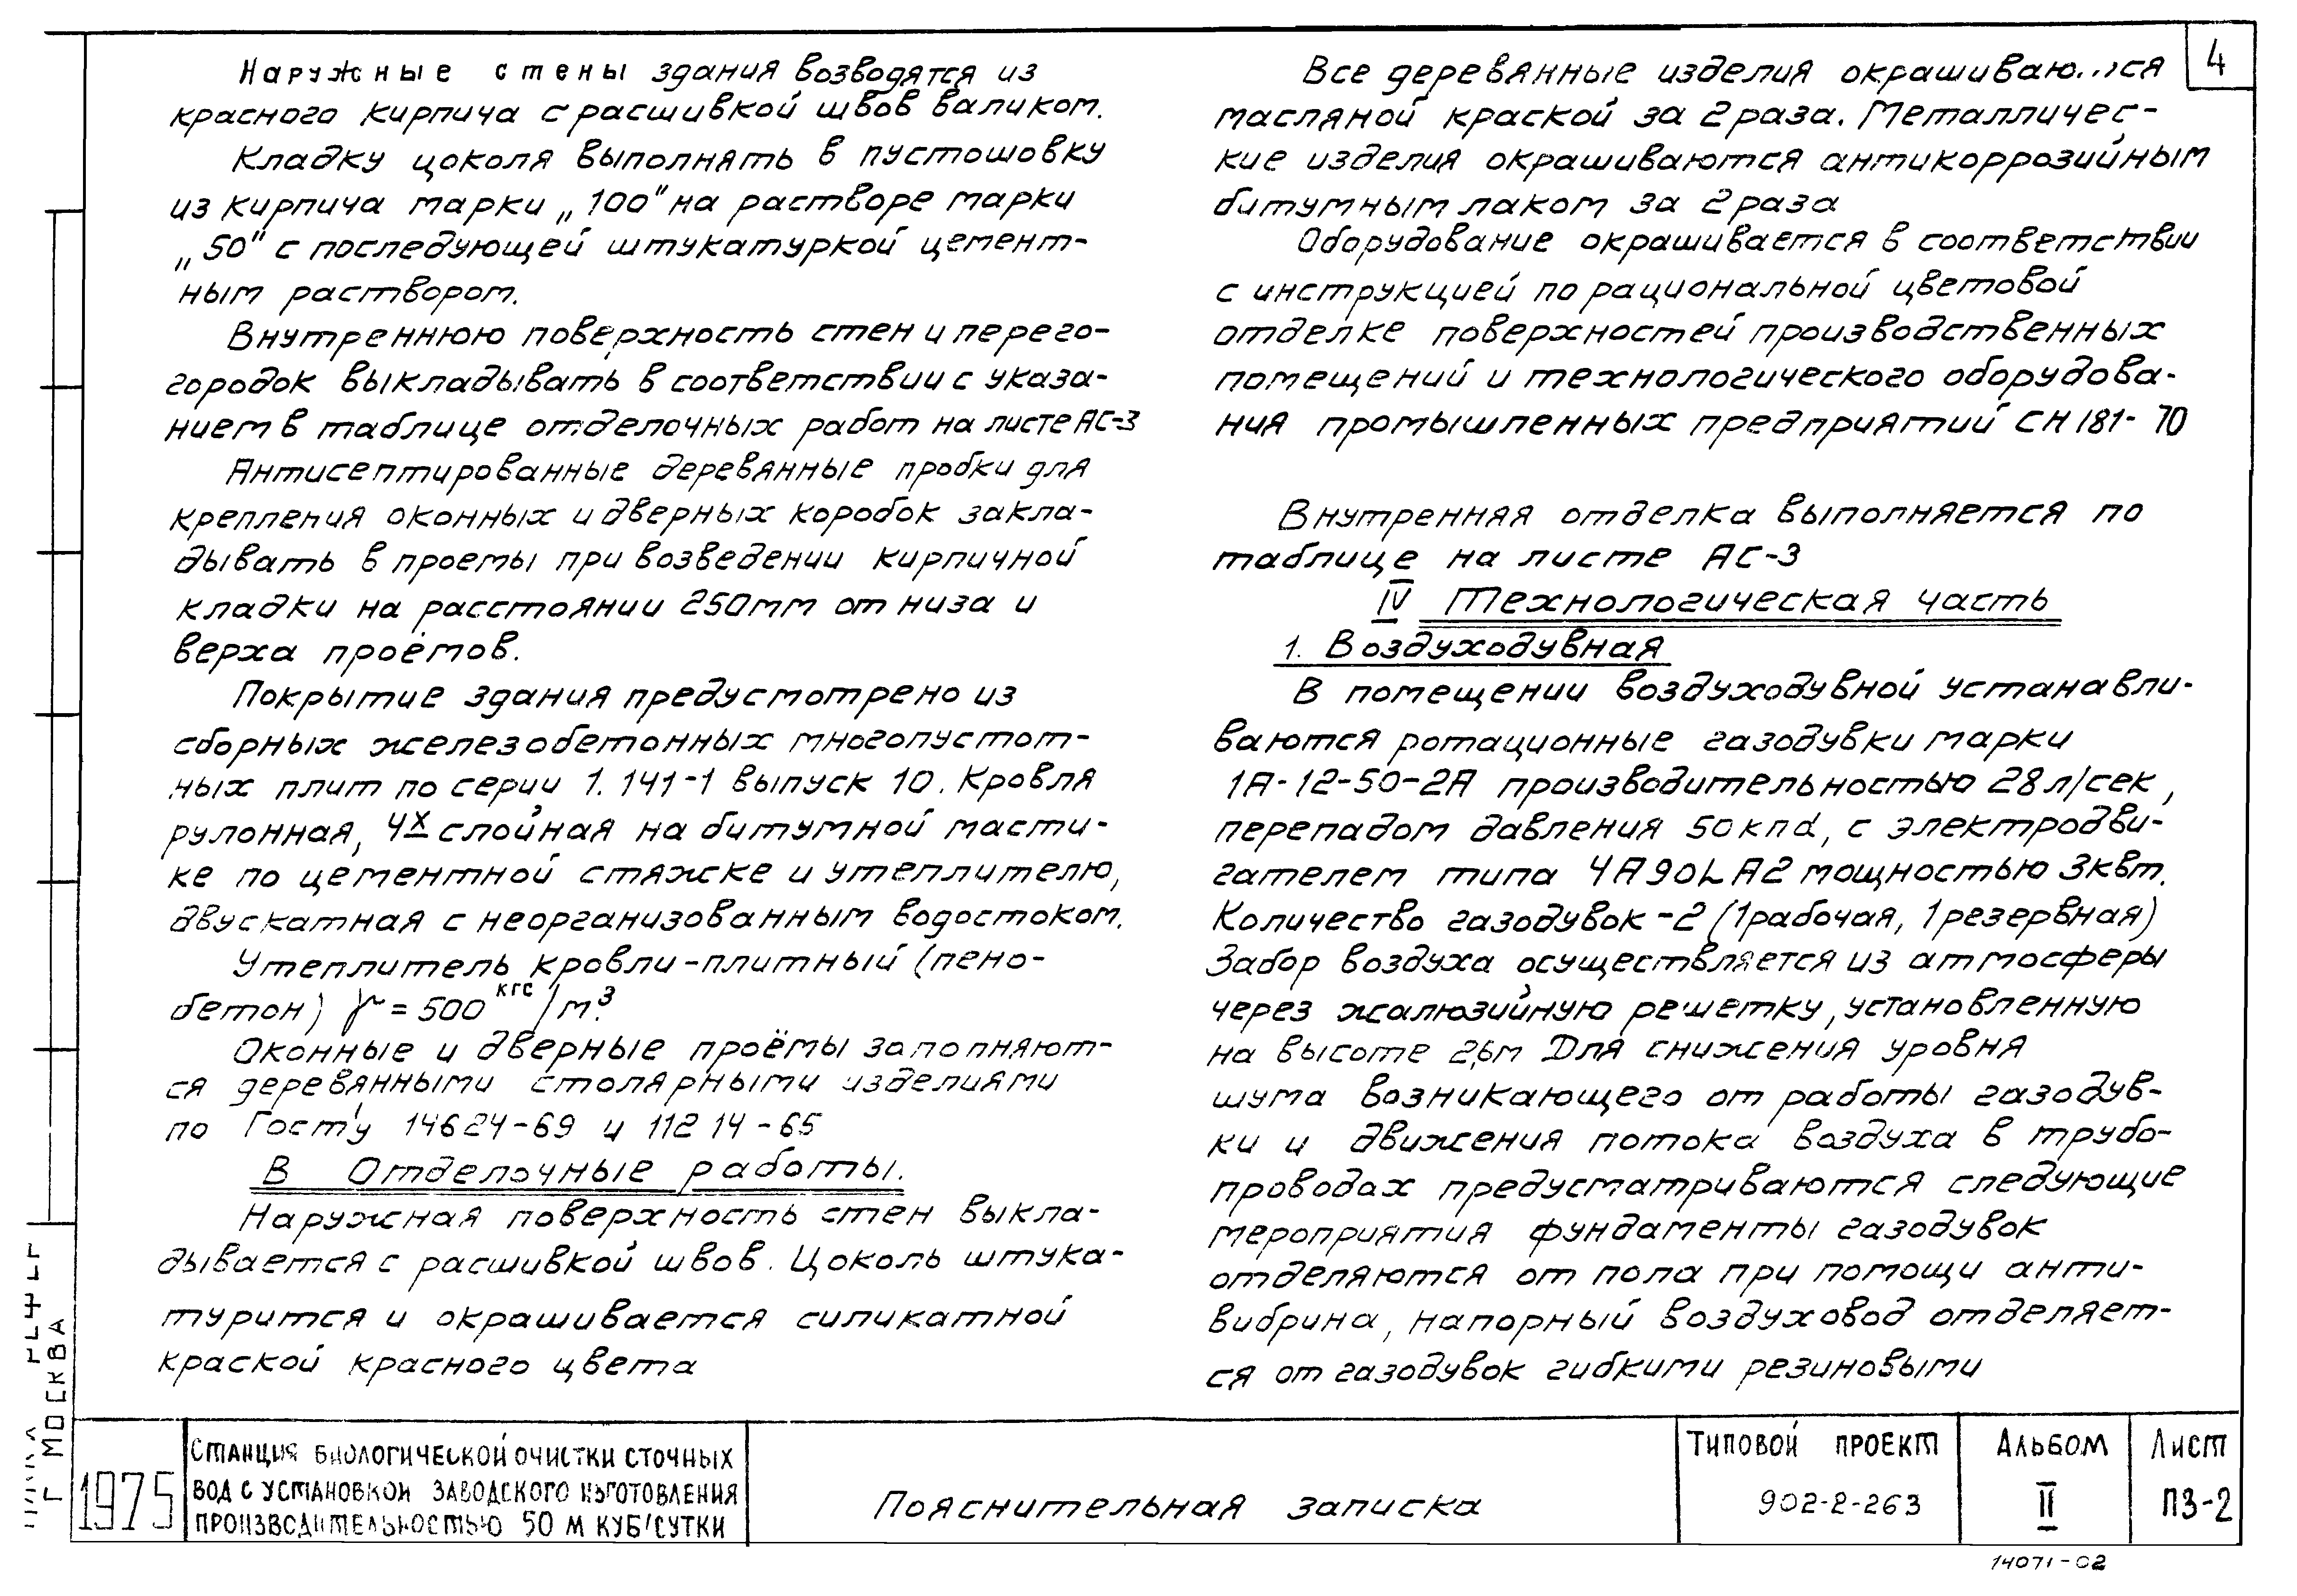 4
Наружные стены здания возводятся из
красного кирпича с расшивкой швов валиком.
Кладку цоколя выполнять в пустошовку
из кирпича марки „100" на растворе марки
„50" с последующей штукатуркой цемент-
ным раствором.
Внутреннюю поверхность стен и перего-
городок выкладывать в соответствии с указа-
нием в таблице отделочных работ на листе АС-3
Антисептированные деревянные пробки для
крепления оконных и дверных коробок закла-
дывать в проемы при возведении кирпичной
кладки на расстоянии 250мм от низа и
верха проёмов.
Покрытие здания предусмотрено из
сборных железобетонных многопустот-
ных плит по серии 1.141-1 выпуск 10. Кровля
рулонная, 4х слойная на битумной масти-
ке по цементной стяжке и утеплителю,
двускатная с неорганизованным водостоком.
Утеплитель кровли-плитный (пено-
бетон) γ = 500 кгс/м³.
Оконные и дверные проёмы заполняют-
ся деревянными столярными изделиями
по Гост'у 14624-69 и 11214-65
В Отделочные работы.
Наружная поверхность стен выкла-
дывается с расшивкой швов. Цоколь штука-
турится и окрашивается силикатной
краской красного цвета
Все деревянные изделия
масляной краской за 2 раза. Металличес-
кие изделия окрашиваются антикоррозийным
битумным лаком за 2 раза
Оборудование окрашивается в соответствии
с инструкцией по рациональной цветовой
отделке поверхностей производственных
помещений и технологического оборудова-
ния промышленных предприятий СН 181-70
Внутренняя отделка выполняется по
таблице на листе АС-3
IV Технологическая часть
1. Воздуходувная
В помещении воздуходувной устанавли-
ваются ротационные газодувки марки
1А-12-50-2А производительностью 28 л/сек,
перепадом давления 50 кпа, с электродви-
гателем типа 4А90LА2 мощностью 3квт.
Количество газодувок-2 (1рабочая, 1резервная)
Забор воздуха осуществляется из атмосферы
через жалюзийную решетку, установленную
на высоте 2,6м Для снижения уровня
шума возникающего от работы газодув-
ки и движения потока воздуха в трубо-
проводах предусматриваются следующие
мероприятия фундаменты газодувок
отделяются от пола при помощи анти-
вибрина, напорный воздуховод отделяет-
ся от газодувок гибкими резиновыми
Г МОСКВА
1975
СТАНЦИЯ БИОЛОГИЧЕСКОЙ ОЧИСТКИ СТОЧНЫХ
ВОД С УСТАНОВКОЙ ЗАВОДСКОГО ИЗГОТОВЛЕНИЯ
ПРОИЗВОДИТЕЛЬНОСТЬЮ 50 М КУБ/СУТКИ
Пояснительная записка
ТИПОВОЙ ПРОЕКТ
902-2-263
АЛЬБОМ
II
ЛИСТ
ПЗ-2
14071-02